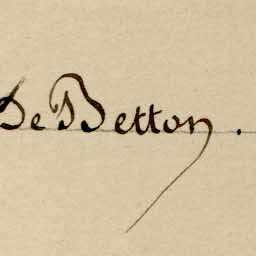 De Betton.